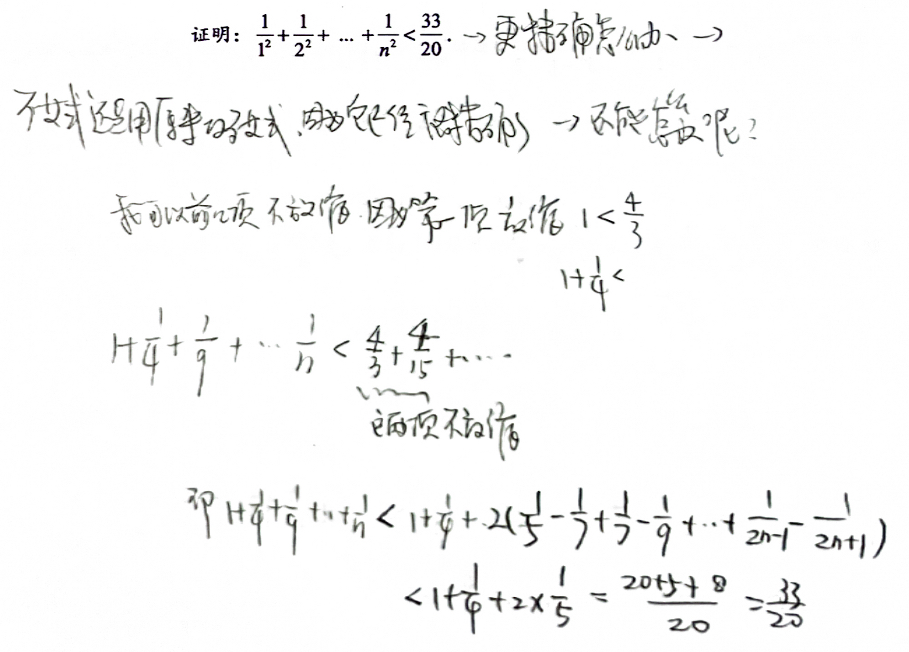 证明：1/1²+1/2²+ … +1/n²<33/20. → 更精确怎么办、→
不等式还是用原来的不等式、因为它已经很精确 → 还能怎么放呢？
我可以前2项不放缩. 因为第一项放缩 1<4/3
1+1/4<
1+1/4+1/9+…1/n<4/3+4/15+….
这两项不放缩
即1+1/4+1/9+…+1/n<1+1/4+2(1/5-1/7+1/7-1/9+…+1/(2n-1)-1/(2n+1))
<1+1/4+2×1/5=(20+5+8)/20=33/20